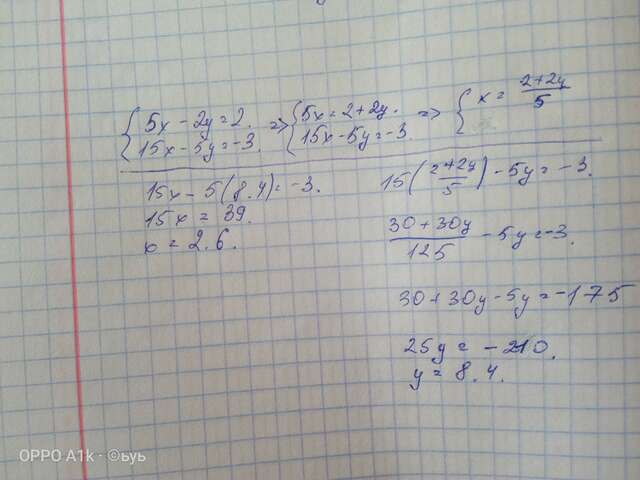 5x - 2y = 2. => 5x = 2 + 2y. => x = (2+2y)/5
15x - 5y = -3. 15x - 5y = -3
15x - 5(8.4) = -3.
15x = 39.
x = 2.6.
15((2+2y)/5) - 5y = -3.
(30+30y)/125 - 5y = -3.
30+30y-5y = -175
25y = -210.
y = 8.4.
OPPO A1k · ©ьуь